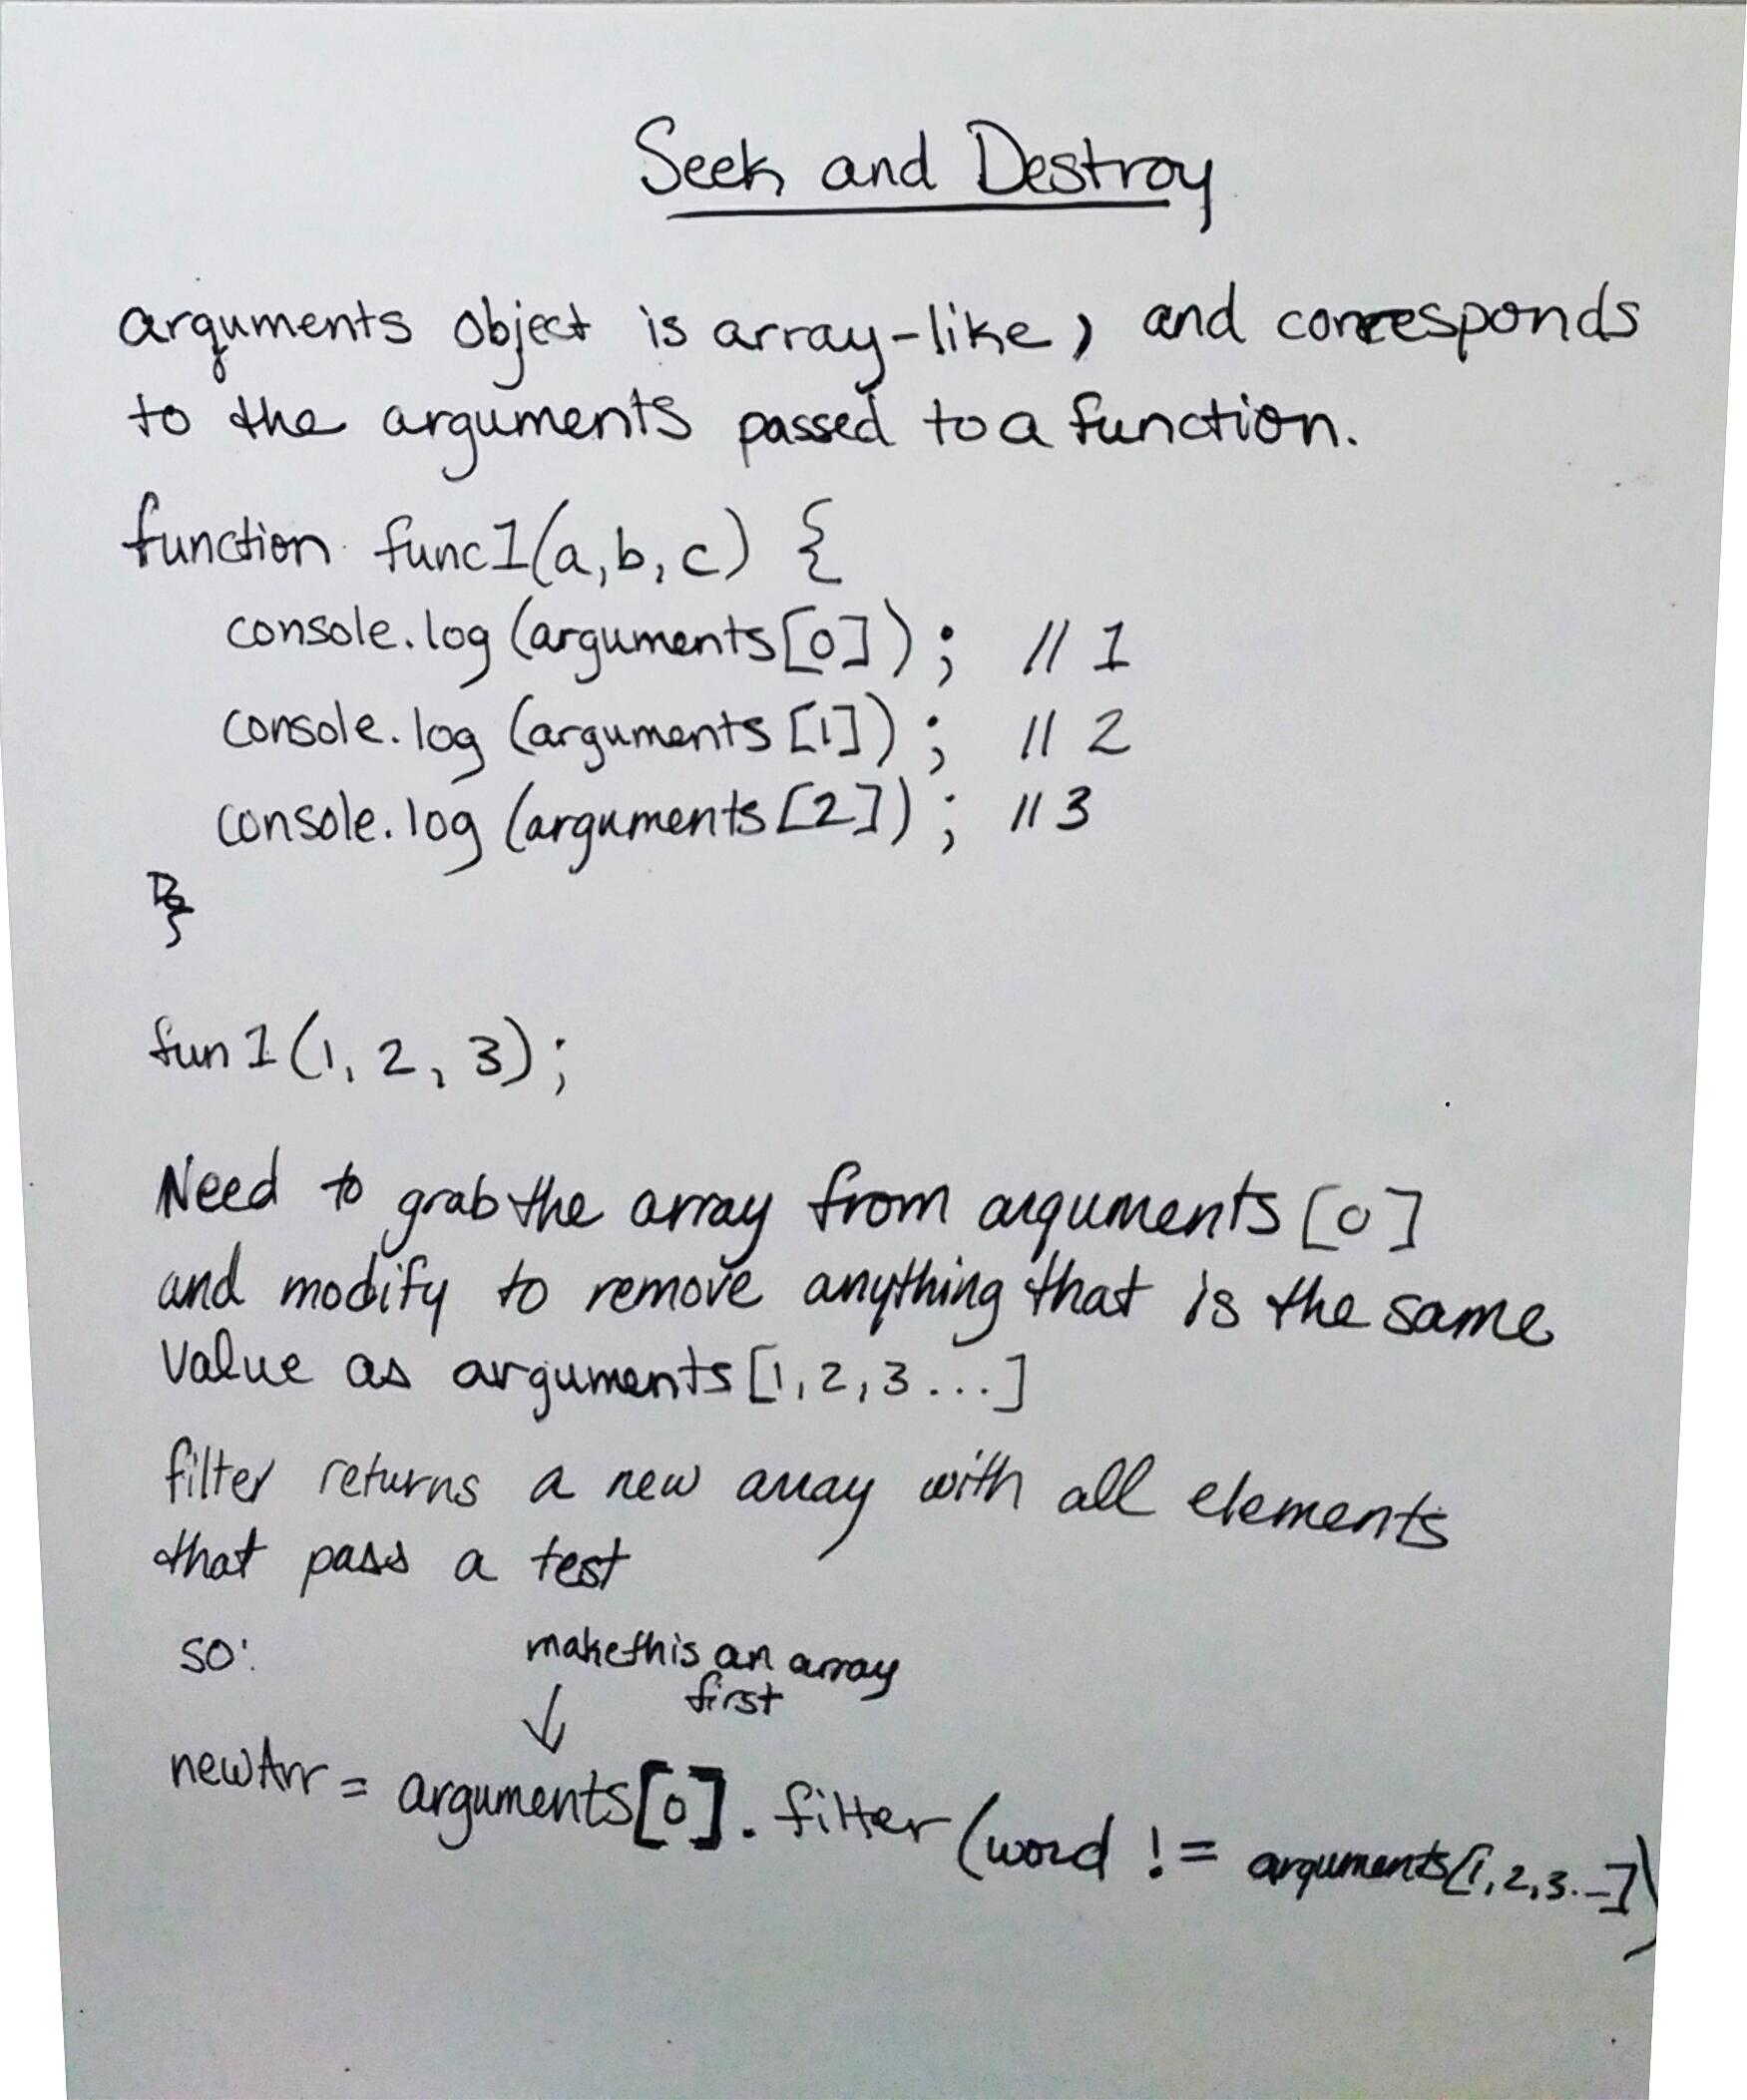 Seek and Destroy
arguments object is array-like, and corresponds
to the arguments passed to a function.
function func1(a,b,c) {
console.log (arguments[0]); // 1
console.log (arguments [1]); // 2
console.log (arguments [2]); // 3
}
fun1(1, 2, 3);
Need to grab the array from arguments [0]
and modify to remove anything that is the same
value as arguments [1,2,3...]
filter returns a new array with all elements
that pass a test
so:
make this an array
first
↓
newArr = arguments[0].filter (word != arguments[1,2,3...])